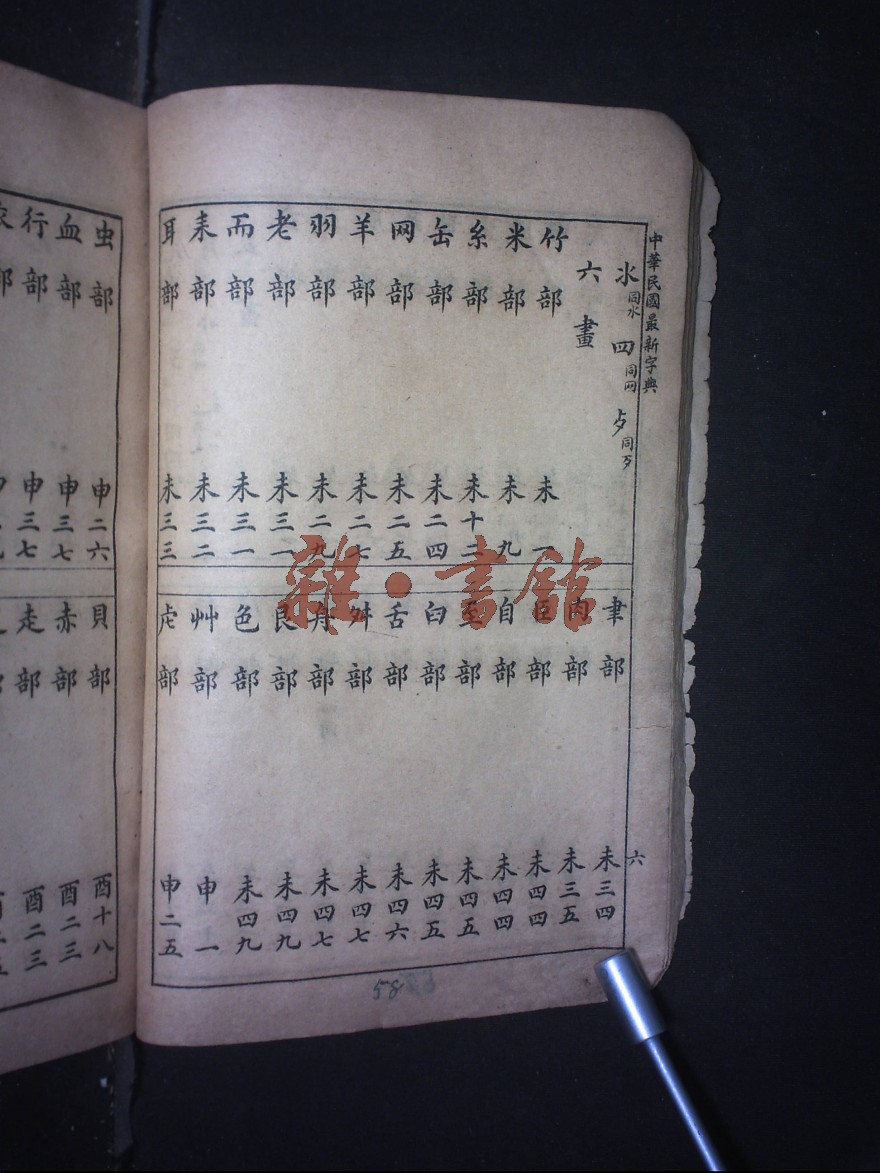 中華民國最新字典
氺同水 四同网 歺同歹
六畫
竹部 未一
米部 未九
糸部 未十二
缶部 未二四
网部 未二五
羊部 未二七
羽部 未二九
老部 未三一
而部 未三一
耒部 未三二
耳部 未三三
聿部 未三四
肉部 未三五
臣部 未四四
自部 未四四
至部 未四五
臼部 未四五
舌部 未四六
舛部 未四七
舟部 未四七
艮部 未四九
色部 未四九
艸部 申一
虍部 申二五
六
58
虫部 申二六
血部 申三七
行部 申三七
貝部 酉十八
赤部 酉二三
走部 酉二三
雜·書館